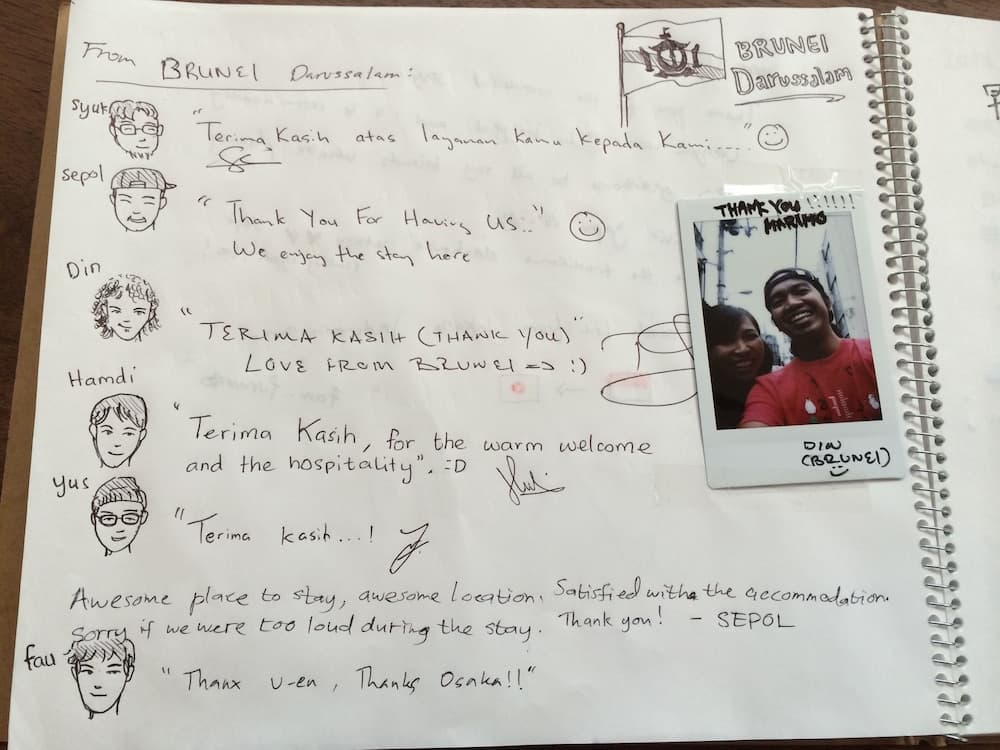 From BRUNEI Darussalam:
BRUNEI
Darussalam
Syuk
"Terima Kasih atas layanan kamu kepada kami....."
Sepol
"Thank You For Having Us.."
We enjoy the stay here
Din
"TERIMA KASIH (THANK YOU)"
LOVE FROM BRUNEI => :)
Hamdi
"Terima Kasih, for the warm welcome
and the hospitality". =D
Yus
"Terima kasih...!
Awesome place to stay, awesome location. Satisfied with the accommodation.
Sorry if we were too loud during the stay. Thank you! - SEPOL
fau
"Thanx U-en, Thanks Osaka!!"
THANK YOU !!!!!!
MARUMO
DIN
(BRUNEI)